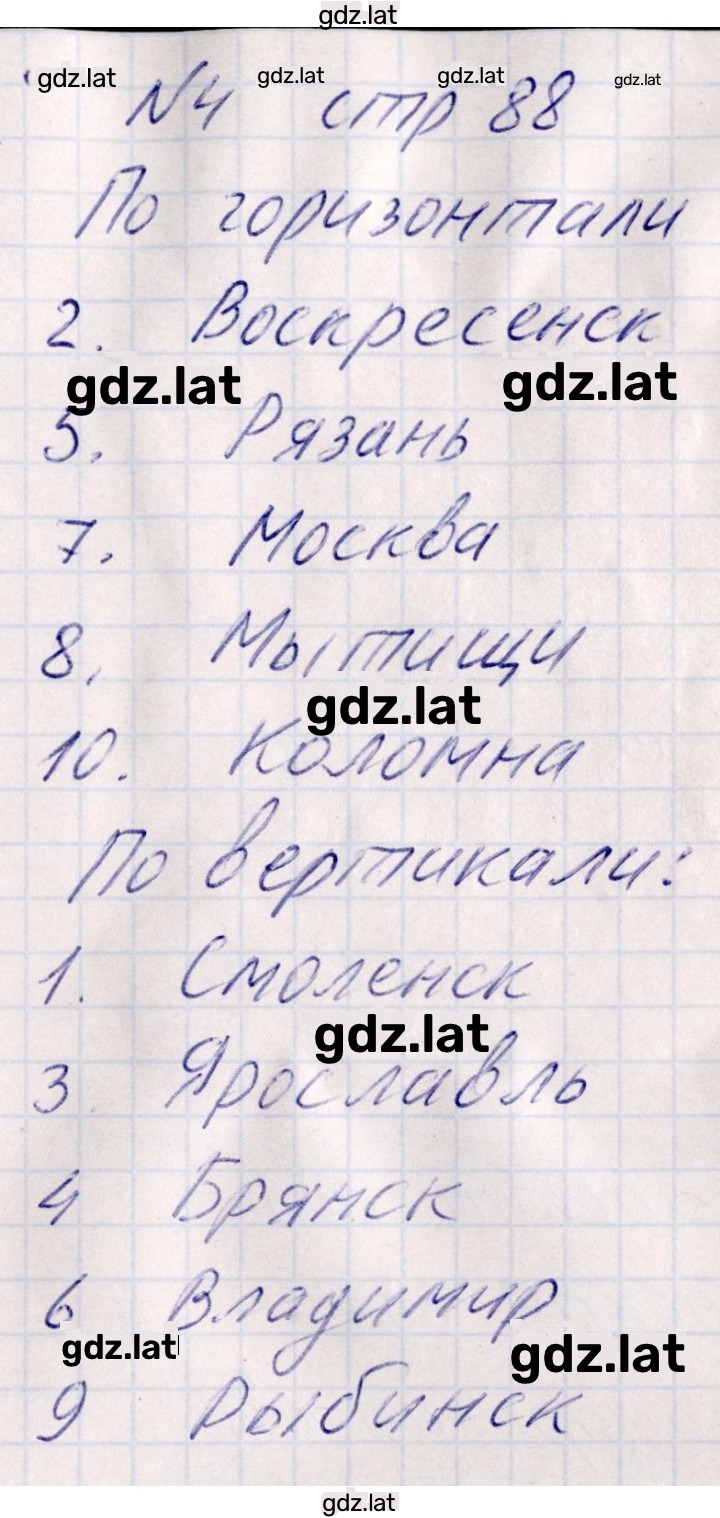 gdz.lat
gdz.lat gdz.lat gdz.lat gdz.lat
№4 стр 88
По горизонтали
2. Воскресенск
gdz.lat gdz.lat
5. Рязань
7. Москва
8. Мытищи
gdz.lat
10. Коломна
По вертикали:
1. Смоленск
gdz.lat
3. Ярославль
4 Брянск
6 Владимир
gdz.lat gdz.lat
9 Рыбинск
gdz.lat